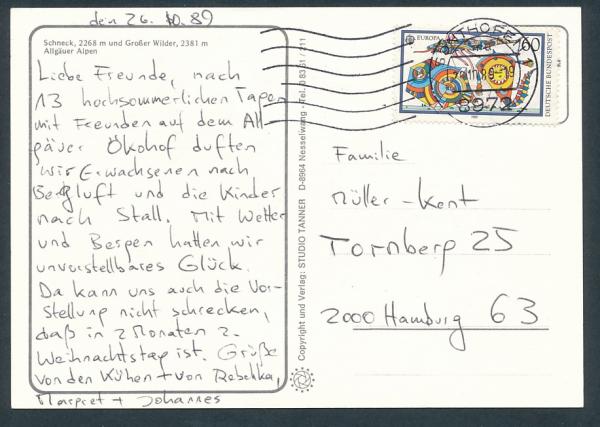 den 26. 10. 89
Schneck, 2268 m und Großer Wilder, 2381 m
Allgäuer Alpen
Liebe Freunde, nach
13 hochsommerlichen Tagen
mit Freunden auf dem All-
gäuer Ökohof duften
wir Erwachsenen nach
Bergluft und die Kinder
nach Stall. Mit Wetter
und Bergen hatten wir
unvorstellbares Glück.
Da kann uns auch die Vor-
stellung nicht schrecken,
daß in 2 Monaten 2.
Weihnachtstag ist. Grüße
von den Kühen + von Rebekka,
Margret + Johannes
Copyright und Verlag: STUDIO TANNER D-8964 Nesselwang · Tel. 0 83 61 / 711
EUROPA
60
DEUTSCHE BUNDESPOST
8972
Familie
Müller-Kent
Tornberg 25
2000 Hamburg 63